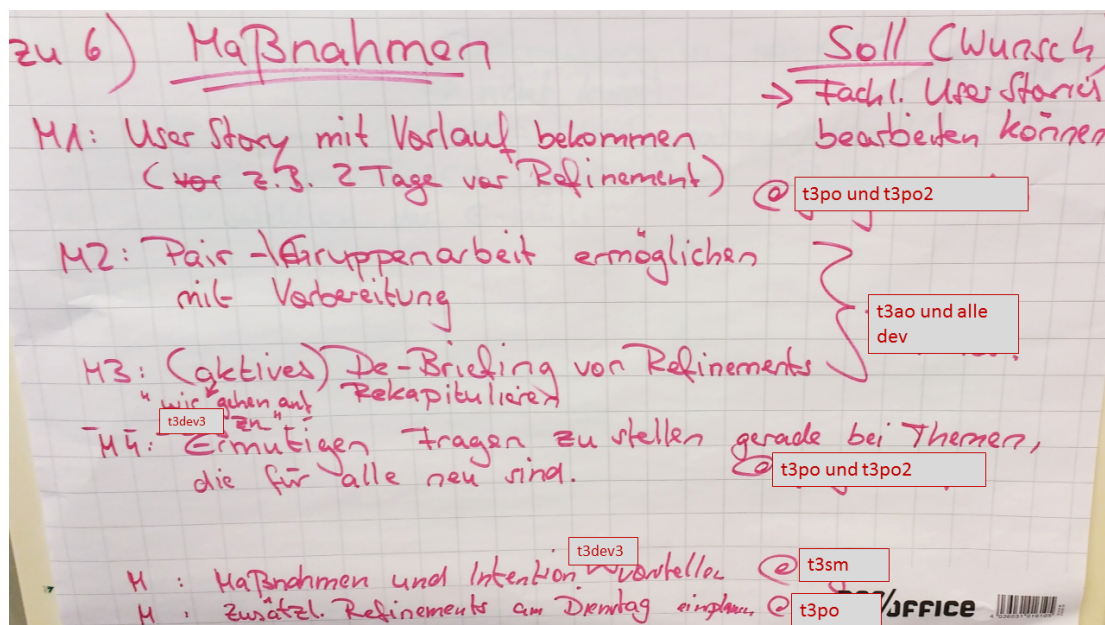 zu 6) Maßnahmen
Soll (Wunsch
→ Fachl. User Stories
bearbeiten können
M1: User Story mit Vorlauf bekommen
(vor z.B. 2 Tage vor Refinement)
@ t3po und t3po2
M2: Pair-/Gruppenarbeit ermöglichen
mit Vorbereitung
t3ao und alle
dev
M3: (aktives) De-Briefing von Refinements
Rekapitulieren
"wir gehen auf
t3dev3 zu"
M4: Ermutigen Fragen zu stellen gerade bei Themen,
die für alle neu sind.
@ t3po und t3po2
t3dev3
M : Maßnahmen und Intention vorstellen @ t3sm
M : Zusätzl. Refinements am Dienstag einplanen @ t3po
OFFICE